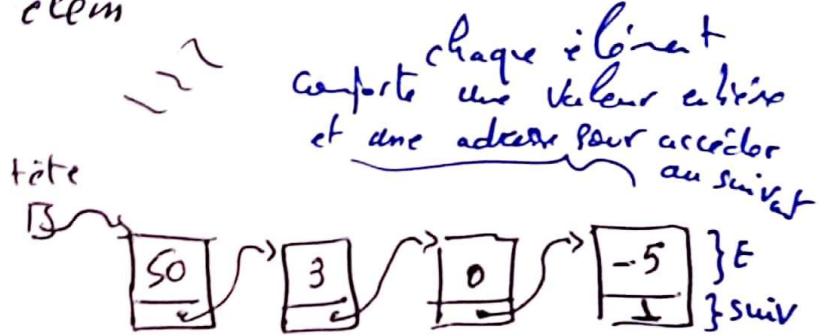 elem
chaque élément
comporte une valeur entière
et une adresse pour accéder
au suivant
tête
50 3 0 -5 } E
} suiv